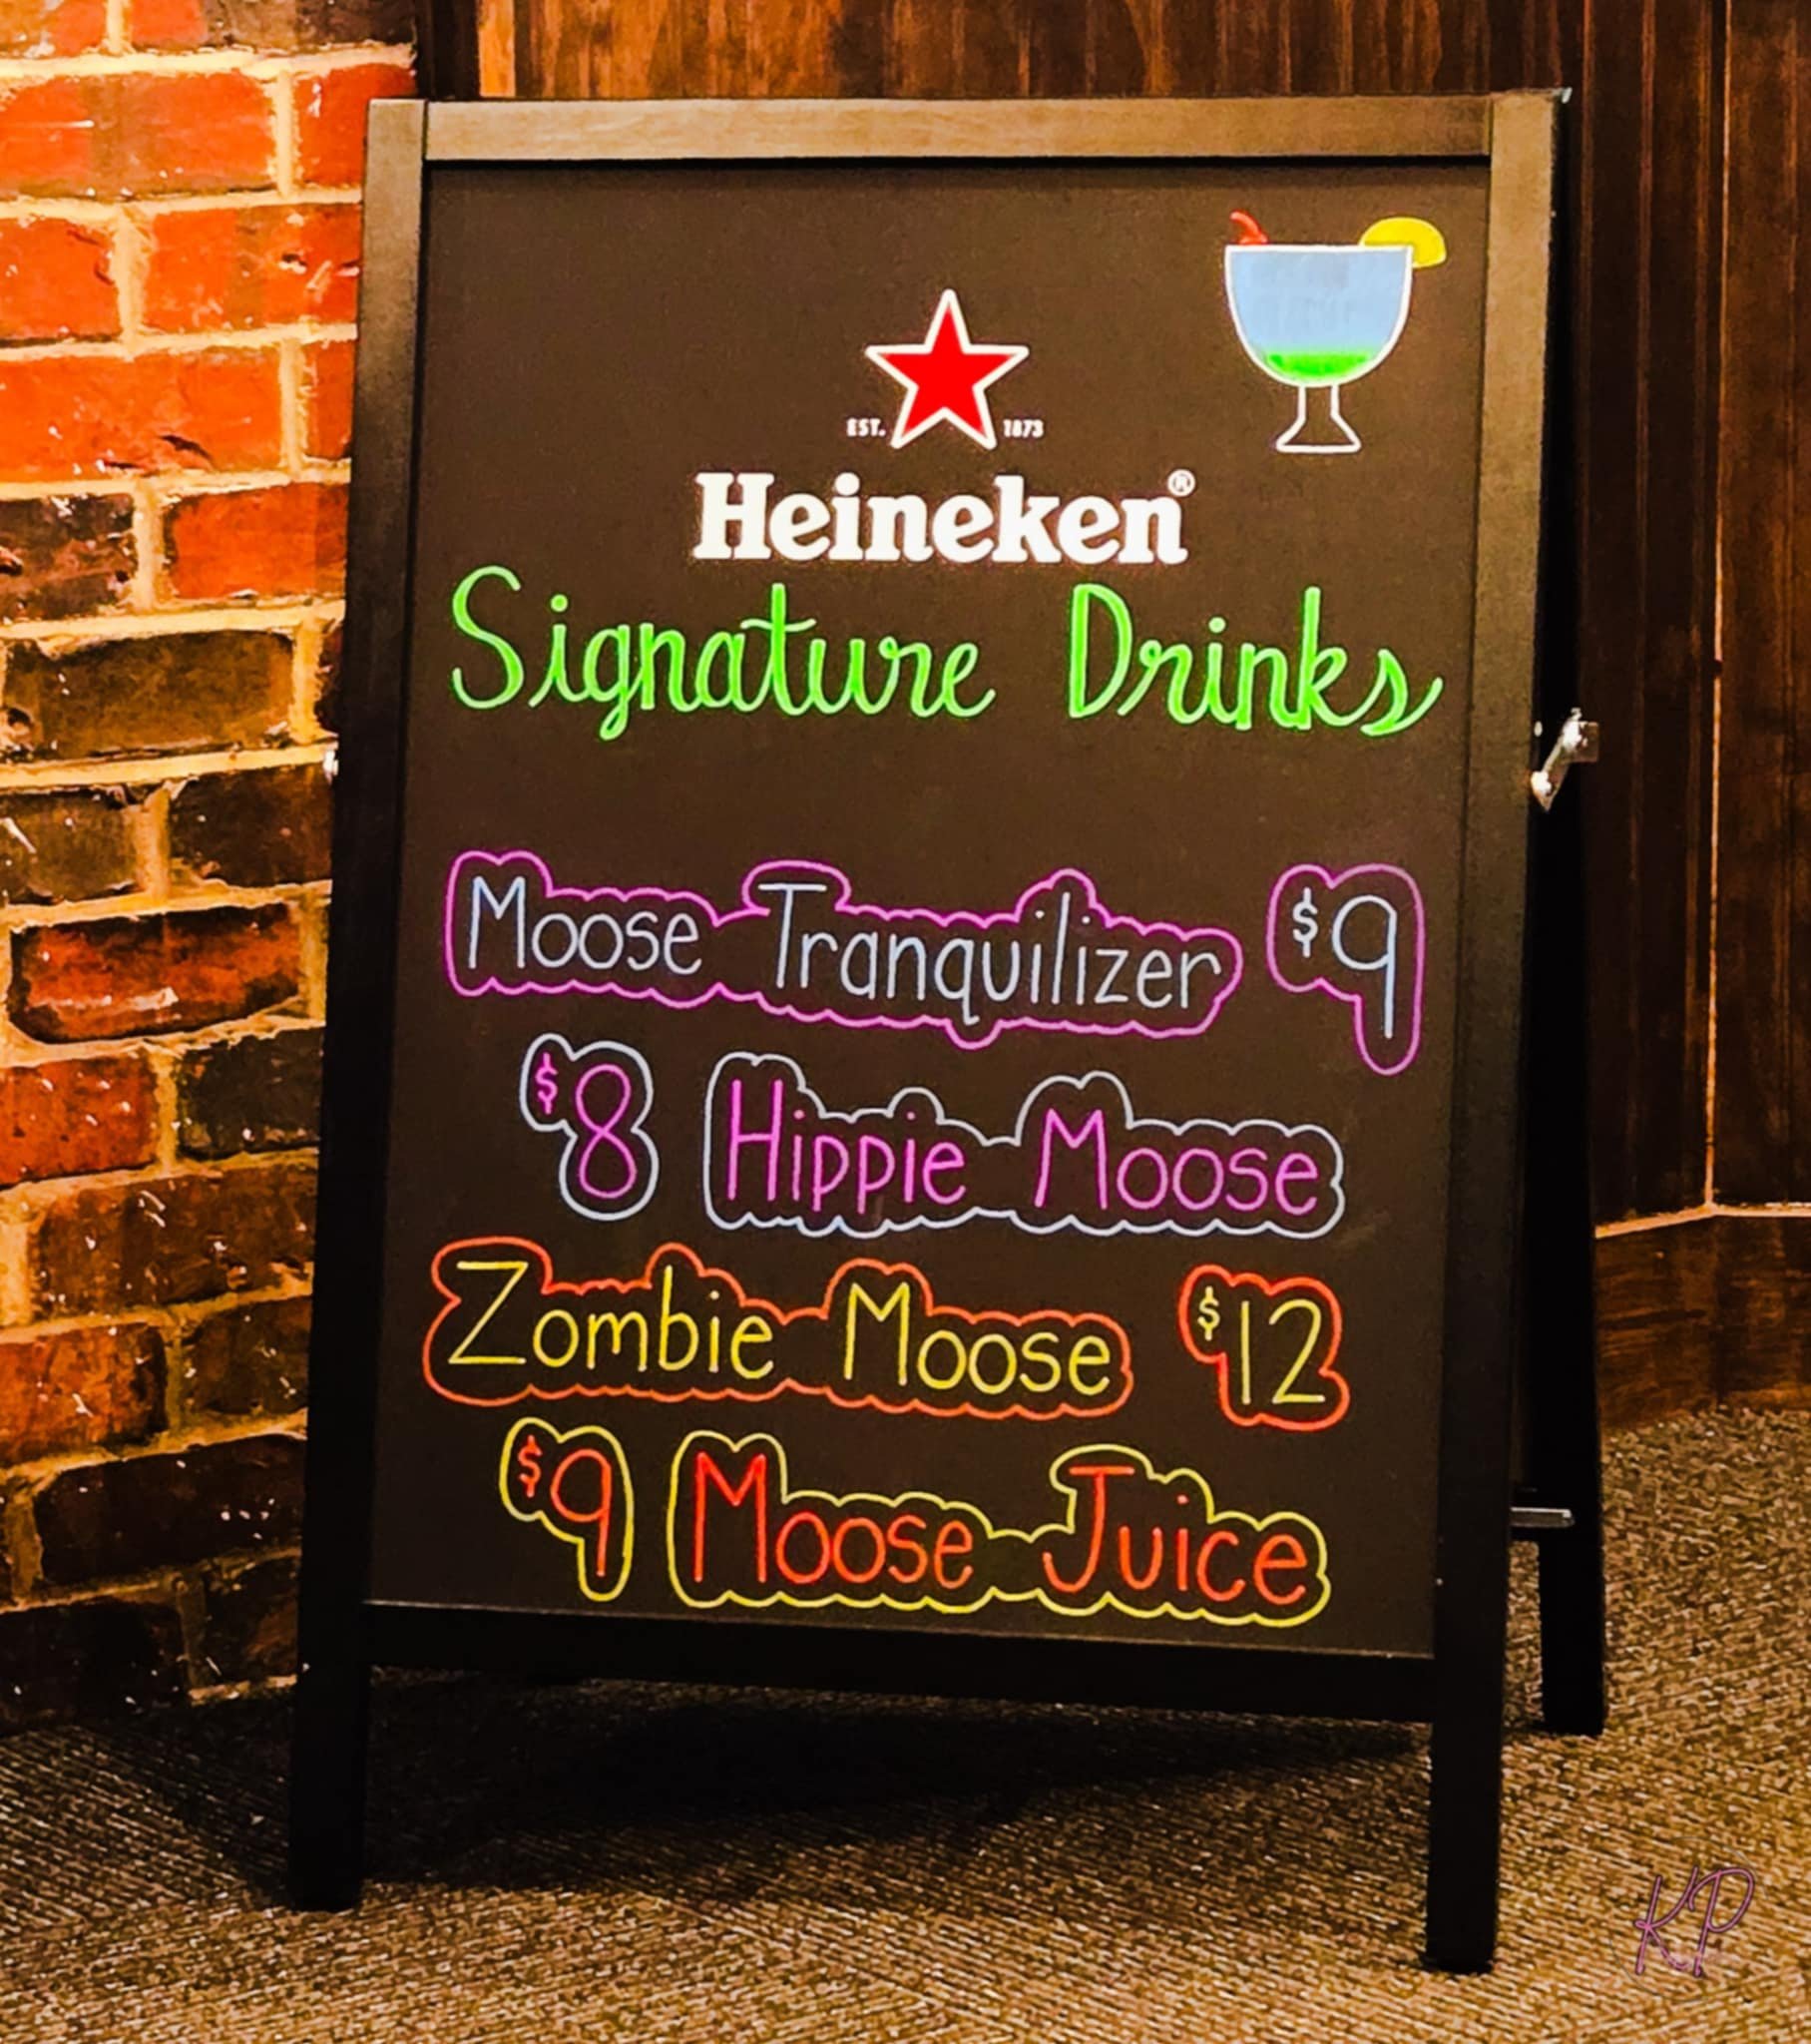 EST. 1873
Heineken®
Signature Drinks
Moose Tranquilizer $9
$8 Hippie Moose
Zombie Moose $12
$9 Moose Juice
KP